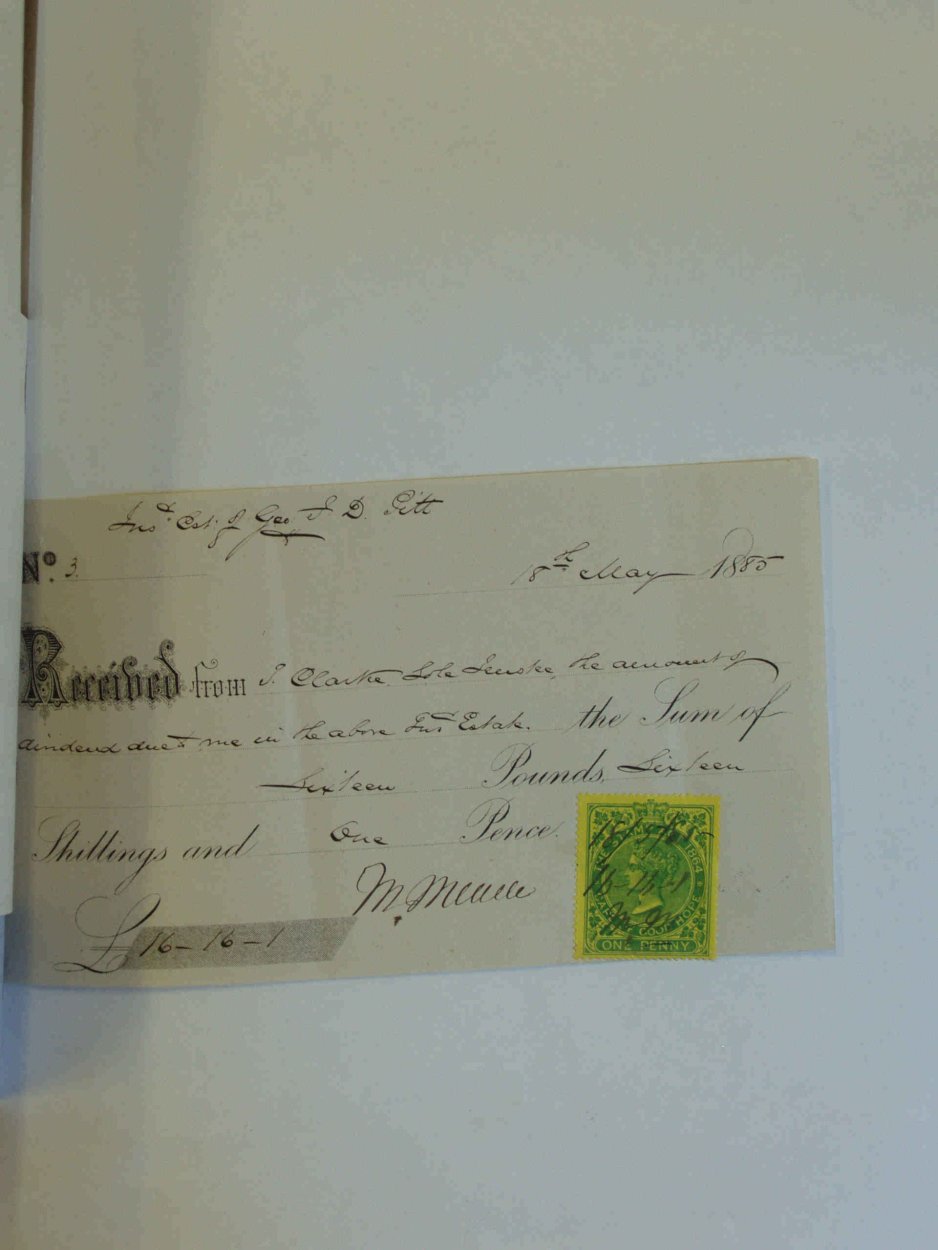 Ins^d. Est. of Geo J D. Pitt
N^o. 3.
18^th May 1885
Received from J. Clarke Sole Trustee, the amount of
dividend due to me in the above Ins^d Estate. the Sum of
Sixteen Pounds, Sixteen
Shillings and One Pence.
£16-16-1
18/5/85
1864
16-16-1
CAPE OF GOOD HOPE
ONE PENNY